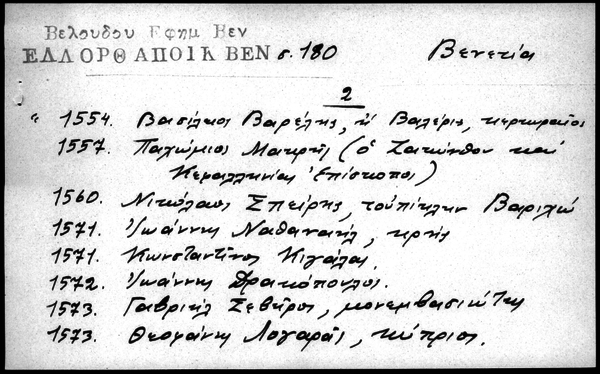 Βελουδου Εφημ Βεν
ΕΛΛΟΡΘ ΑΠΟΙΚ ΒΕΝ σ. 180 Βενετία
2
" 1554. Βασίλειος Βαρέλης, ἢ Βαλέρις, κερκυραῖος
1557. Παχώμιος Μακρῆς (ὁ Ζακύνθου καὶ
Κεφαλληνίας Ἐπίσκοπος)
1560. Νικόλαος Σπείρης, τοὐπίκλην
1571. Ἰωάννης Ναθαναήλ, κρής
1571. Κωνσταντῖνος Κιγάλας.
1572. Ἰωάννης Δρακόπουλος.
1573. Γαβριήλ Σεβῆρος, μονεμβασιώτης
1573. Θεοφάνης Λογαρᾶς, κύπριος.